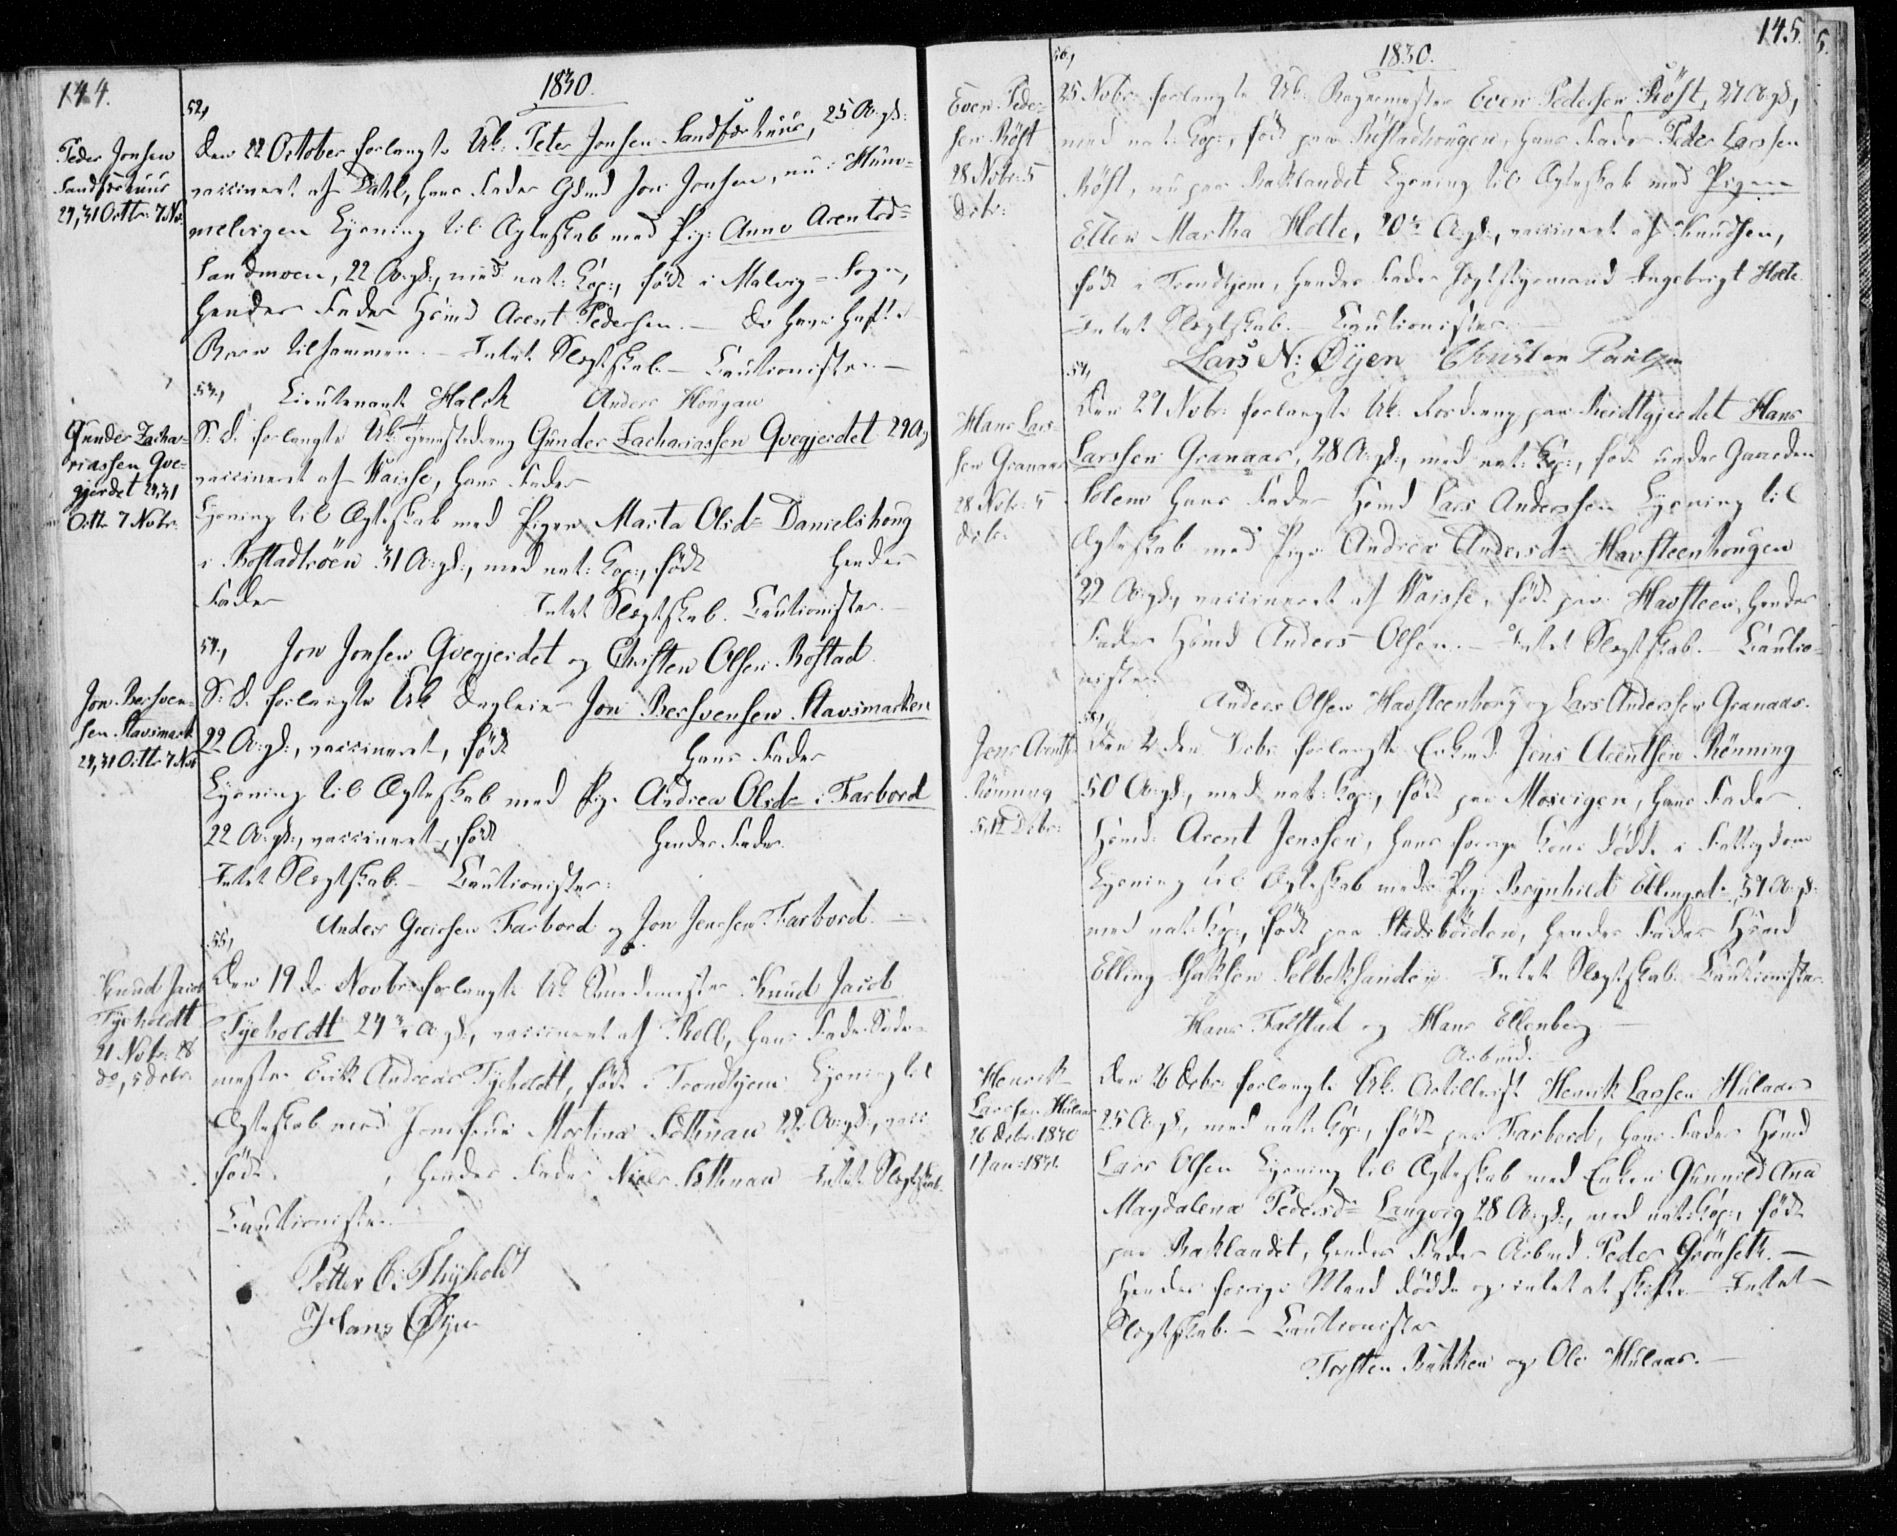 144.
1830.
Peder Jonsen
Sandfærhuus
24, 31 Octbr: 7 No:
52,
Den 22 October forlangte Uk: Peter Jonsen Sandfærhuus, 25 A: gl:
vaccineret af Dahl, hans Fader Jon Jonsen, nu i Hum-
melvigen Lysning til Ægteskab med Pig: Anne Arentsd:
Sandmoen, 22 A: gl:, med nat: Kop:, födt i Malvig-Sogn,
hendes Fader Hsmd Arent Pedersen. — De have haft
Börn tilsammen. — Intet Slegtskab. — Cautionister. —
Lieutenant Halck Anders Hougan
Gunder Zacha-
riassen Qve-
gjerdet 24, 31
Octbr 7 Novbr:
53,
S: D: forlangte Uk: Gunder Zachariassen Qvegjerdet 29 A: g
vaccineret af Kaisse, hans Fader
Lysning til Ægteskab med Pigen Marta Olsd: Danielshoug
i Rostadtröen 31 A: gl:, med nat: Kop:, födt hendes
Fader Intet Slegtskab. Cautionister. —
Jon Jonsen Qvegjerdet og Christen Olsen Rostad.
Jon Bersven-
sen Stavsmark
24, 31 Octbr 7 Nov
54,
S: D: forlangte Uk Jon Bersvensen Stavsmarken
22 A: gl:, vaccineret, födt hans Fader
Lysning til Ægteskab med Pig: Andrea Olsd: i Farbord
22 A: gl:, vaccineret, födt hendes Fader
Intet Slegtskab. — Cautionister:
Anders Greiersen Farbord og Jon Jenssen Farbord. —
Knud Jacob
Tyeholdt
21 Novbr: 28
do, 5 Decbr
55,
Den 19de Novbr: forlangte Uk: Knud Jacob
Tyeholdt 24 A: gl:, vaccineret af Roll, hans Fader
mester Erik Andreas Tyeholdt, födt i Trondhjem Lysning til
Ægteskab med Jomfrue Martina 22 A: gl:, vacc
födt , hendes Fader Niels Intet Slegtskab.
Cautionister
Petter C: Thyholdt
Hans Öyen
145.
1830.
Even Peder-
sen Röst
28 Novbr: 5
Decbr:
56,
25 Novbr: forlangte Uk: Even Pedersen Röst, 27 A: gl:,
med nat: Kop:, födt paa Röstadhougen, hans Fader Peder Larssen
Röst, nu paa Baklandet Lysning til Ægteskab med Pigen
Ellen Martha Holte, 20 A: gl:, vaccineret af Knudsen,
födt i Trondhjem, hendes Fader Ingebrigt Holte.
Intet Slegtskab. Cautionister. —
Lars N: Öyen Christen Paulsen
Hans Lars-
sen Granaas
28 Novbr: 5
Decbr:
57,
Den 27 Novbr: forlangte Uk: paa Reidtgjerdet Hans
Larssen Granaas, 28 A: gl:, med nat: Kop:, födt under Gaarden
Solem hans Fader Hsmd Lars Anderssen Lysning til
Ægteskab med Pige Andrea Andersd: Havsteenhougen
22 A: gl:, vaccineret af Kaisse, födt paa Havsteen, hendes
Fader Hsmd Anders Olsen. — Intet Slegtskab. — Cautio-
nister.
Anders Olsen Havsteenhoug og Lars Anderssen Granaas.
Jens Arents:
Rönning
5, 12 Decbr:
58,
Den 2den Decbr: forlangte Enkmd Jens Arentsen Rönning
50 A: gl:, med nat: Kop:, födt paa Mosvigen, hans Fader
Hsmd: Arent Jenssen, hans forrige Kone dödde i Fattigdom
Lysning til Ægteskab med Pig: Brynhild Ellingsd:, 37 A: gl:
med nat: Kop:, födt paa Stadsböiden, hendes Fader Hsmd
Elling Selbeksanden Intet Slegtskab. Cautionister.
Hans Falstad og Hans Ellenberg —
Henrik
Larsen Hulaas
26 Decbr: 1830
1 Jan: 1831.
Arbmd.
Den 26 Decbr: forlangte Uk: Artillerist Henrik Larsen Hulaas
25 A: gl:, med nat: Kop:, födt paa Farbord, hans Fader Hsmd
Lars Olsen Lysning til Ægteskab med Enken Gunnild Ana
Magdalena Pedersd: Langvig 28 A: gl:, med nat: Kop:, födt
paa Baklandet, hendes Fader Arbmd Peder Grönseth. —
Hendes forrige Mand dödde og intet at skifte. Intet
Slegtskab. — Cautionister
Torsten Bakken og Ole Hulaas. —